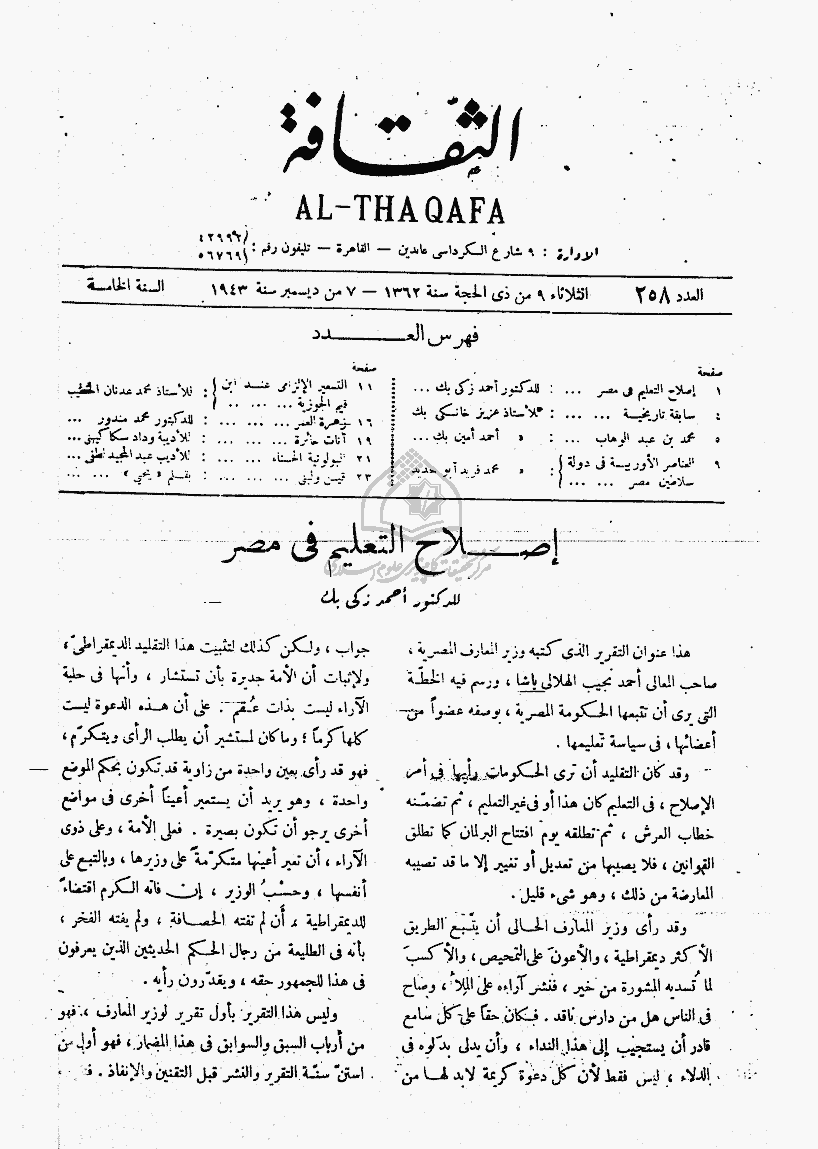 الثقافة
AL-THAQAFA
الإدارة : ٩ شارع الكرداسى عابدين — القاهرة — تليفون رقم : ( ٤٢٩٩٢ ٥٦٧٦٩
العدد ٢٥٨ الثلاثاء ٩ من ذى الحجة سنة ١٣٦٢ — ٧ من ديسمبر سنة ١٩٤٣ السنة الخامسة
فهرس العـــدد
صفحة
١ إصلاح التعليم فى مصر ... : للدكتور أحمد زكى بك ...
٤ سابقة تاريخية ... ... : للأستاذ عزيز خانكى بك
٥ محمد بن عبد الوهاب ... : » أحمد أمين بك ...
٩ العناصر الأوربية فى دولة سلاطين مصر ... ... : » محمد فريد أبو حديد
صفحة
١١ التسعير الإلزامى عنــد ابن قيم الجوزية ... ... .. : للأستاذ محمد عدنان الخطيب
١٦ زهرة العمر ... ... ... : للدكتور محمد مندور ...
١٩ أنات حائرة ... ... ... : للأديبة وداد سكاكينى ...
٢١ البولونية الحسناء ... ... : للأديب عبد المجيد لطفى ...
٢٣ قيس ولبنى ... ... ... : بقلم « يحيى » ... ...
إصـــلاح التعليم فى مصر
للدكتور أحمد زكى بك
هذا عنوان التقرير الذى كتبه وزير المعارف المصرية ،
صاحب المعالى أحمد نجيب الهلالى باشا ، ورسم فيه الخطة
التى يرى أن تتبعها الحكومة المصرية ، بوصفه عضواً من
أعضائها ، فى سياسة تعليمها .
وقد كان التقليد أن ترى الحكومات رأيها فى أمر
الإصلاح ، فى التعليم كان هذا أو فى غير التعليم ، ثم تضمّنه
خطاب العرش ، ثم تطلقه يوم افتتاح البرلمان كما تطلق
القوانين ، فلا يصيبها من تعديل أو تغيير إلا ما قد تصيبه
المعارضة من ذلك ، وهو شىء قليل .
وقد رأى وزير المعارف الحالى أن يتّبع الطريق
الأكثر ديمقراطية ، والأعونَ على التمحيص ، والأكسبَ
لما تُسديه المشورة من خير ، فنشر آراءه على الملأ ، وصاح
فى الناس هل من دارس ناقد . فكان حقاً على كل سامع
قادر أن يستجيب إلى هذا النداء ، وأن يدلى بدلوه فى
الدلاء ، ليس فقط لأن كل دعوة كريمة لابد لهـا من
جواب ، ولكن كذلك لتثبيت هذا التقليد الديمقراطىّ ،
ولإثبات أن الأمة جديرة بأن تستشار ، وأنها فى حلبة
الآراء ليست بذات عُقم . على أن هـذه الدعوة ليست
كلها كرماً ؛ وما كان لمستشير أن يطلب الرأى ويتكرّم ،
فهو قد رأى بعين واحدة من زاوية قد تكون بحكم الموضع
واحدة ، وهو يريد أن يستعير أعيناً أخرى فى مواضع
أخرى يرجو أن تكون بصيرة . فعلى الأمة ، وعلى ذوى
الآراء ، أن تعير أعينها متكرّمةً على وزيرها ، وبالتبع على
أنفسها ، وحسْبُ الوزير ، إن فاته الكرم اقتضاءً
للديمقراطية ، أن لم تفته الحصافة ، ولم يفته الفخر ،
بأنه فى الطليعة من رجال الحكم الحديثين الذين يعرفون
فى هذا للجمهور حقه ، ويقدّرون رأيه .
وليس هذا التقرير بأول تقرير لوزير المعارف ، فهو
من أرباب السبق والسوابق فى هذا المضمار ، فهو أول من
استنّ سنّة التقرير والنشر قبل التقنين والإنفاذ .